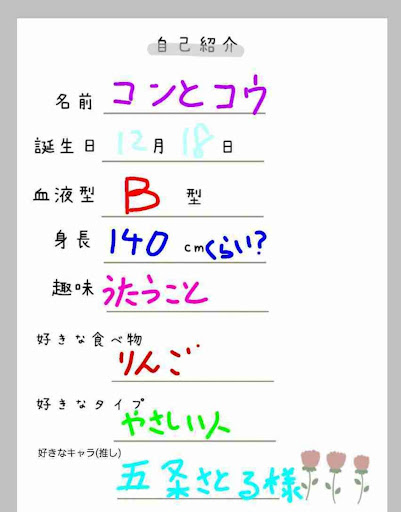 自己紹介
名前 コンとコウ
誕生日 12月 18日
血液型 B 型
身長 140 cmくらい?
趣味 うたうこと
好きな食べ物
りんご
好きなタイプ
やさしい人
好きなキャラ(推し)
五条さとる様